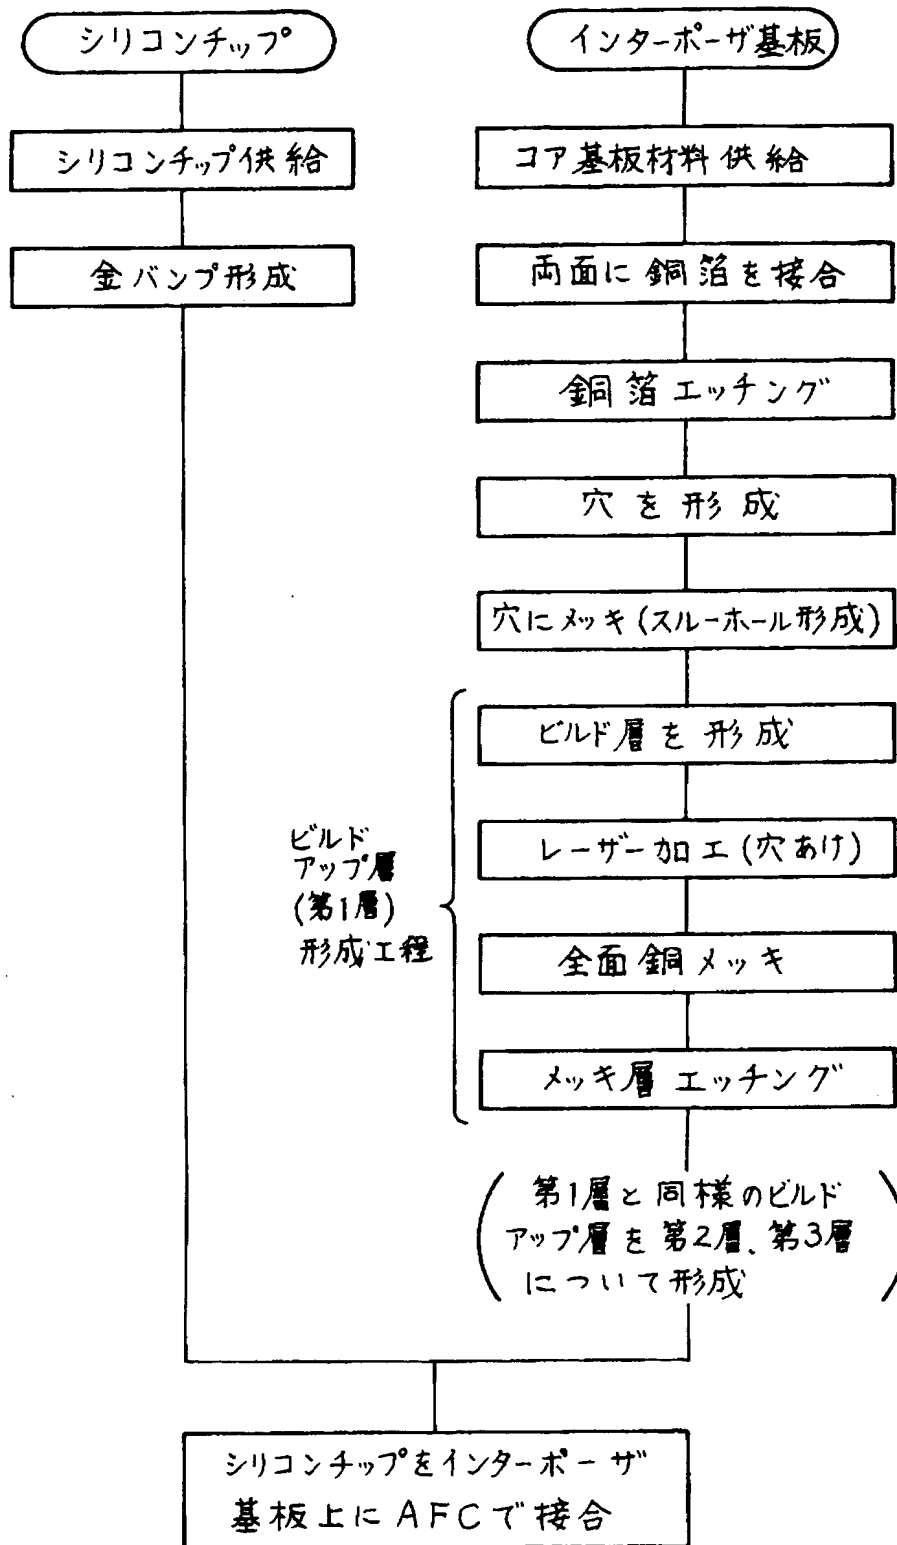 シリコンチップ
シリコンチップ供給
金バンプ形成
インターポーザ基板
コア基板材料供給
両面に銅箔を接合
銅箔エッチング
穴を形成
穴にメッキ(スルーホール形成)
ビルド
アップ層
(第1層)
形成工程
ビルド層を形成
レーザー加工(穴あけ)
全面銅メッキ
メッキ層エッチング
(第1層と同様のビルド
アップ層を第2層、第3層
について形成)
シリコンチップをインターポーザ
基板上にAFCで接合